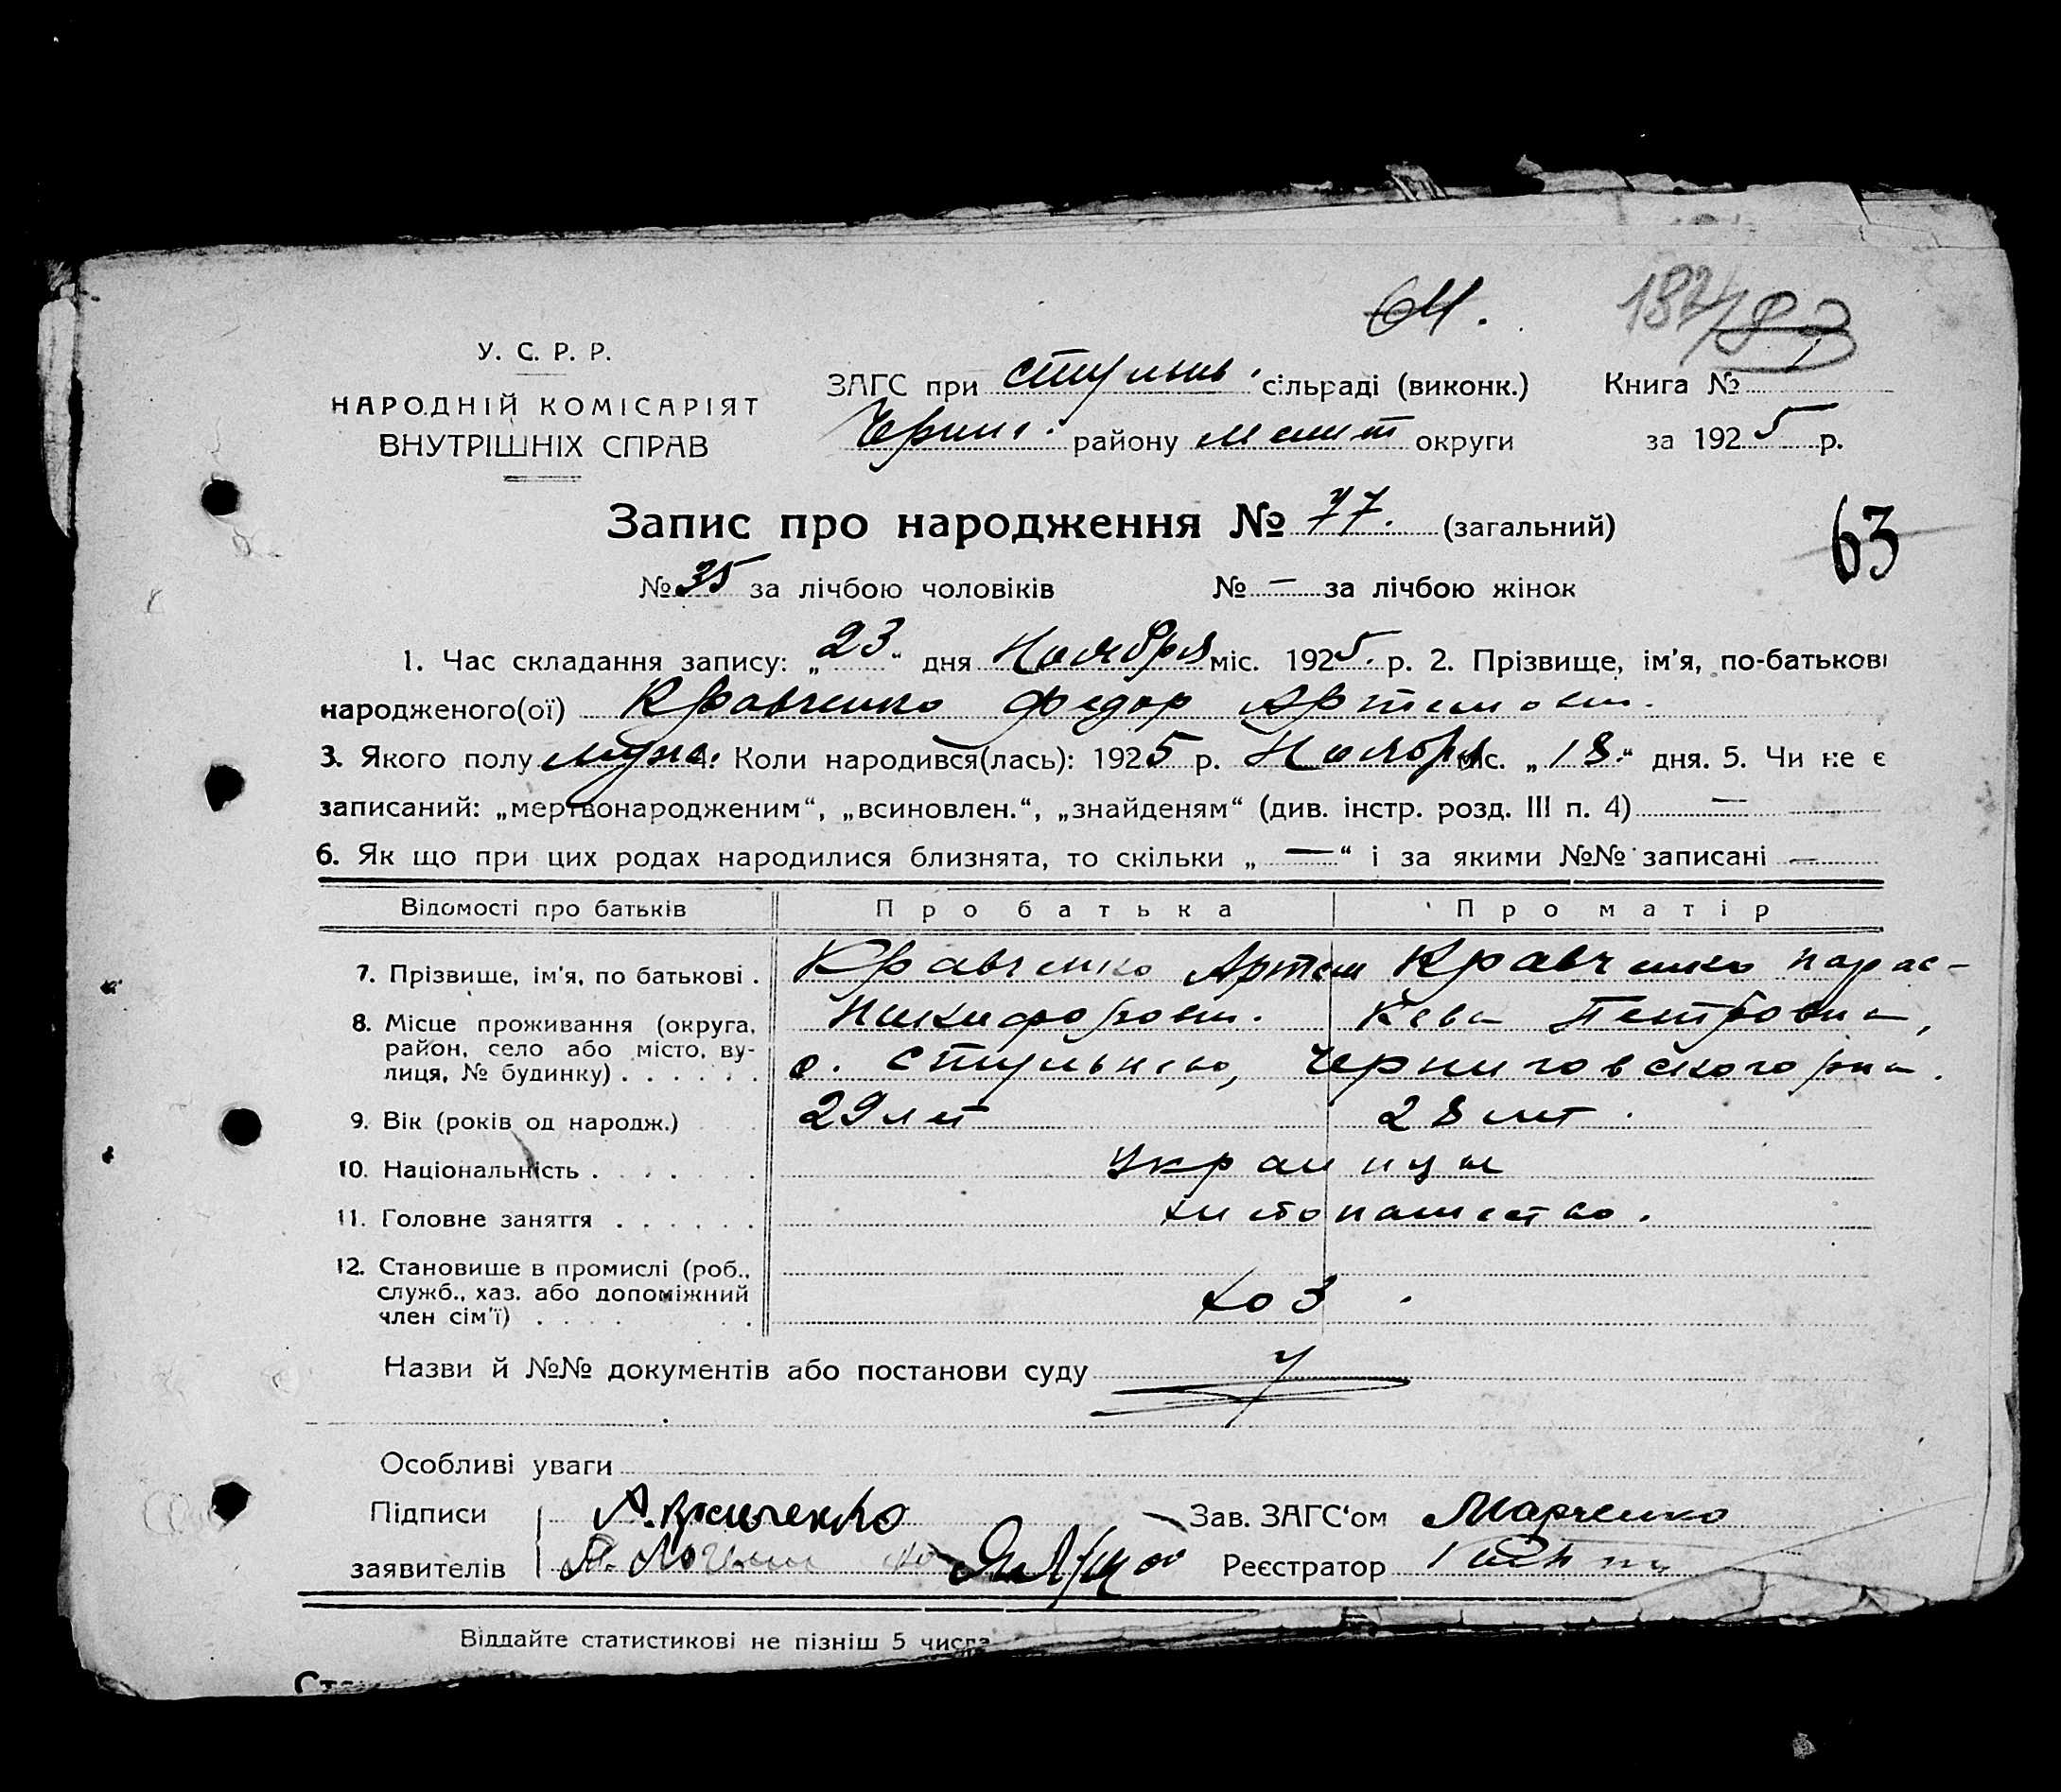 64.
182/83
У. С. Р. Р.
НАРОДНІЙ КОМІСАРІЯТ
ВНУТРІШНІХ СПРАВ
ЗАГС при стульн. сільраді (виконк.) Книга №
Черниг. району мелит округи за 1925 р.
Запис про народження № 77. (загальний)
63
№ 35 за лічбою чоловіків № — за лічбою жінок
1. Час складання запису: „23“ дня Ноября міс. 1925. р. 2. Прізвище, ім'я, по-батькові
народженого(ої) Кравченко Федор Артемов.
3. Якого полу мужс. 4. Коли народився(лась): 1925 р. Ноября міс. „18.“ дня. 5. Чи не є
записаний: „мертвонародженим“, „всиновлен.“, „знайденям“ (див. інстр. розд. III п. 4) —
6. Як що при цих родах народилися близнята, то скільки „ — “ і за якими №№ записані —
Відомості про батьків Про батька Про матір
7. Прізвище, ім'я, по батькові . Кравченко Артем Кравченко Парас-
Никифоров. Кева Петровна,
8. Місце проживання (округа,
район, село або місто, ву-
лиця, № будинку) . . . . . . с. Стульнево, Черниговского рай.
9. Вік (років од народж.) 29 лет 28 лет.
10. Національність . . . . . Украинцы
11. Головне заняття . . . . . . хлебопашество.
12. Становище в промислі (роб.,
служб., хаз. або допоміжний
член сім'ї) . . . . . хоз.
Назви й №№ документів або постанови суду
Особливі уваги
Підписи А. Кравченко Зав. ЗАГС'ом Марченко
заявителів Реєстратор
Віддайте статистикові не пізніш 5 числа